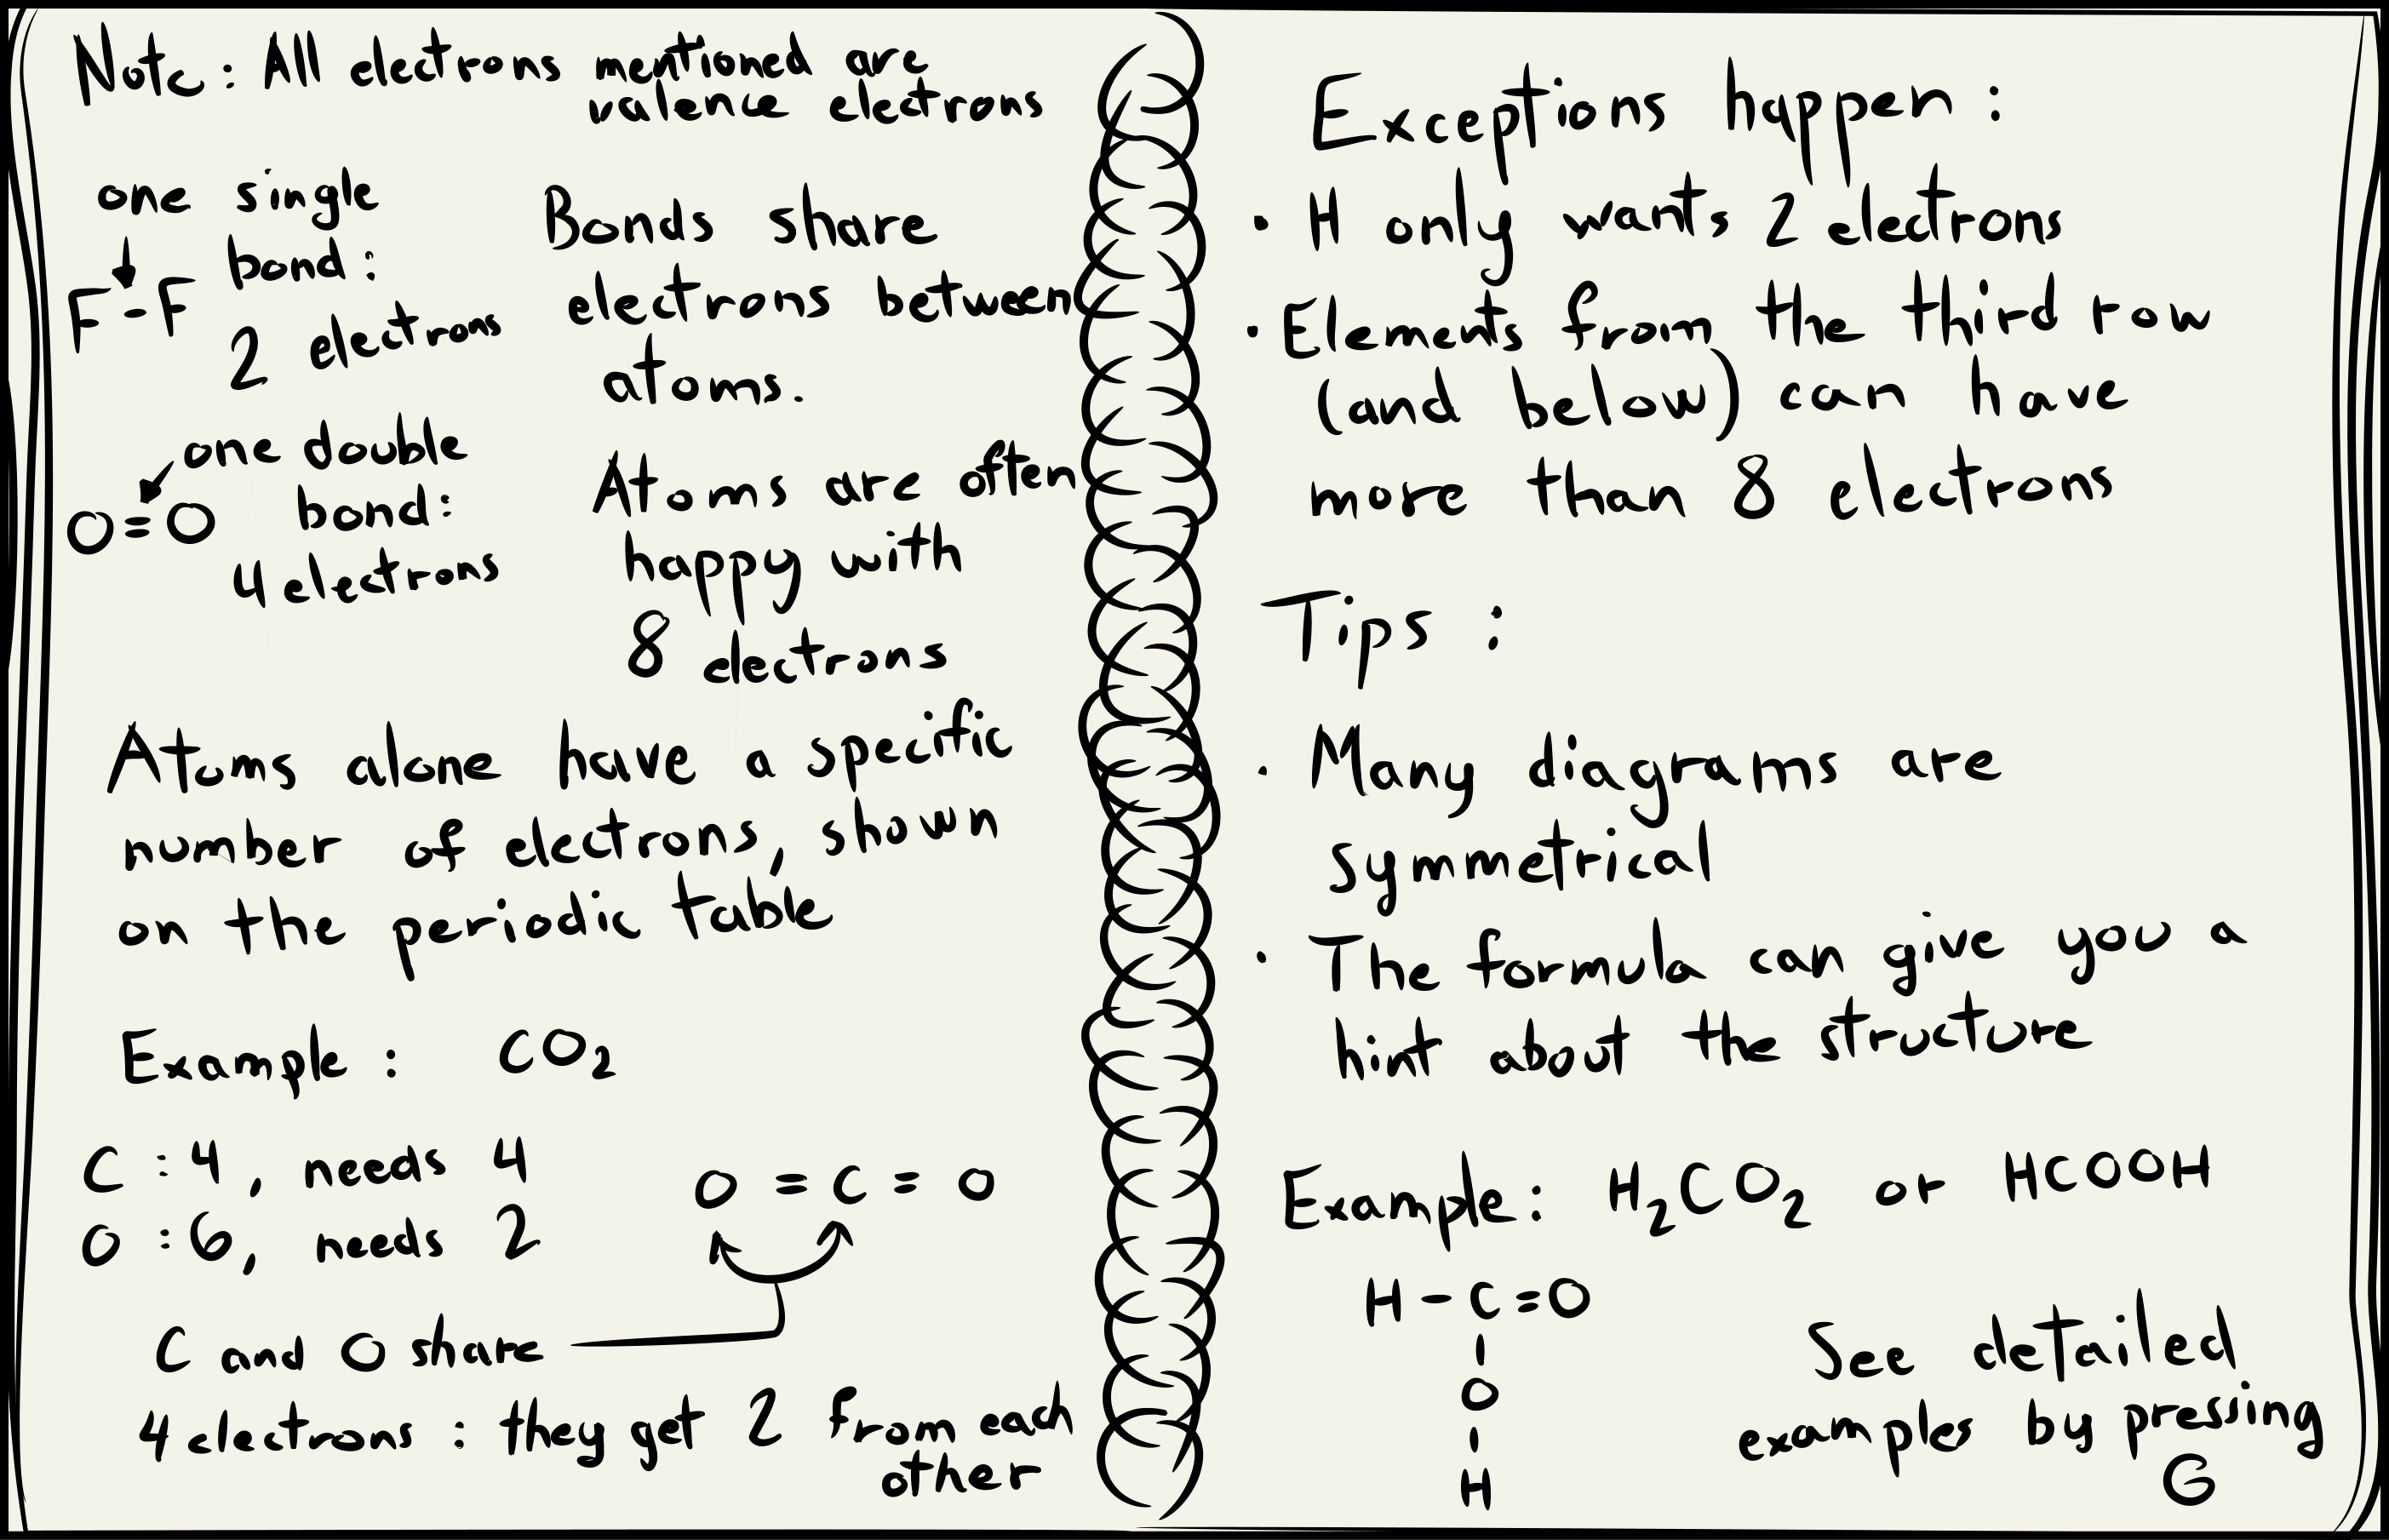 Note : All electrons mentioned are
valence electrons
one single
bond:
F - F
2 electrons
Bonds share
electrons between
atoms.
one double
bond:
O = O
4 electrons
Atoms are often
happy with
8 electrons
Atoms alone have a specific
number of electrons, shown
on the periodic table
Example : CO₂
C : 4, needs 4
O : 6, needs 2
O = C = O
C and O share
4 electrons : they get 2 from each
other
Exceptions happen :
· H only wants 2 electrons
· Elements from the third row
(and below) can have
more than 8 electrons
Tips :
· Many diagrams are
symmetrical
· The formula can give you a
hint about the structure
Example : H₂CO₂ or HCOOH
H - C = O
|
O
|
H
See detailed
examples by pressing
G